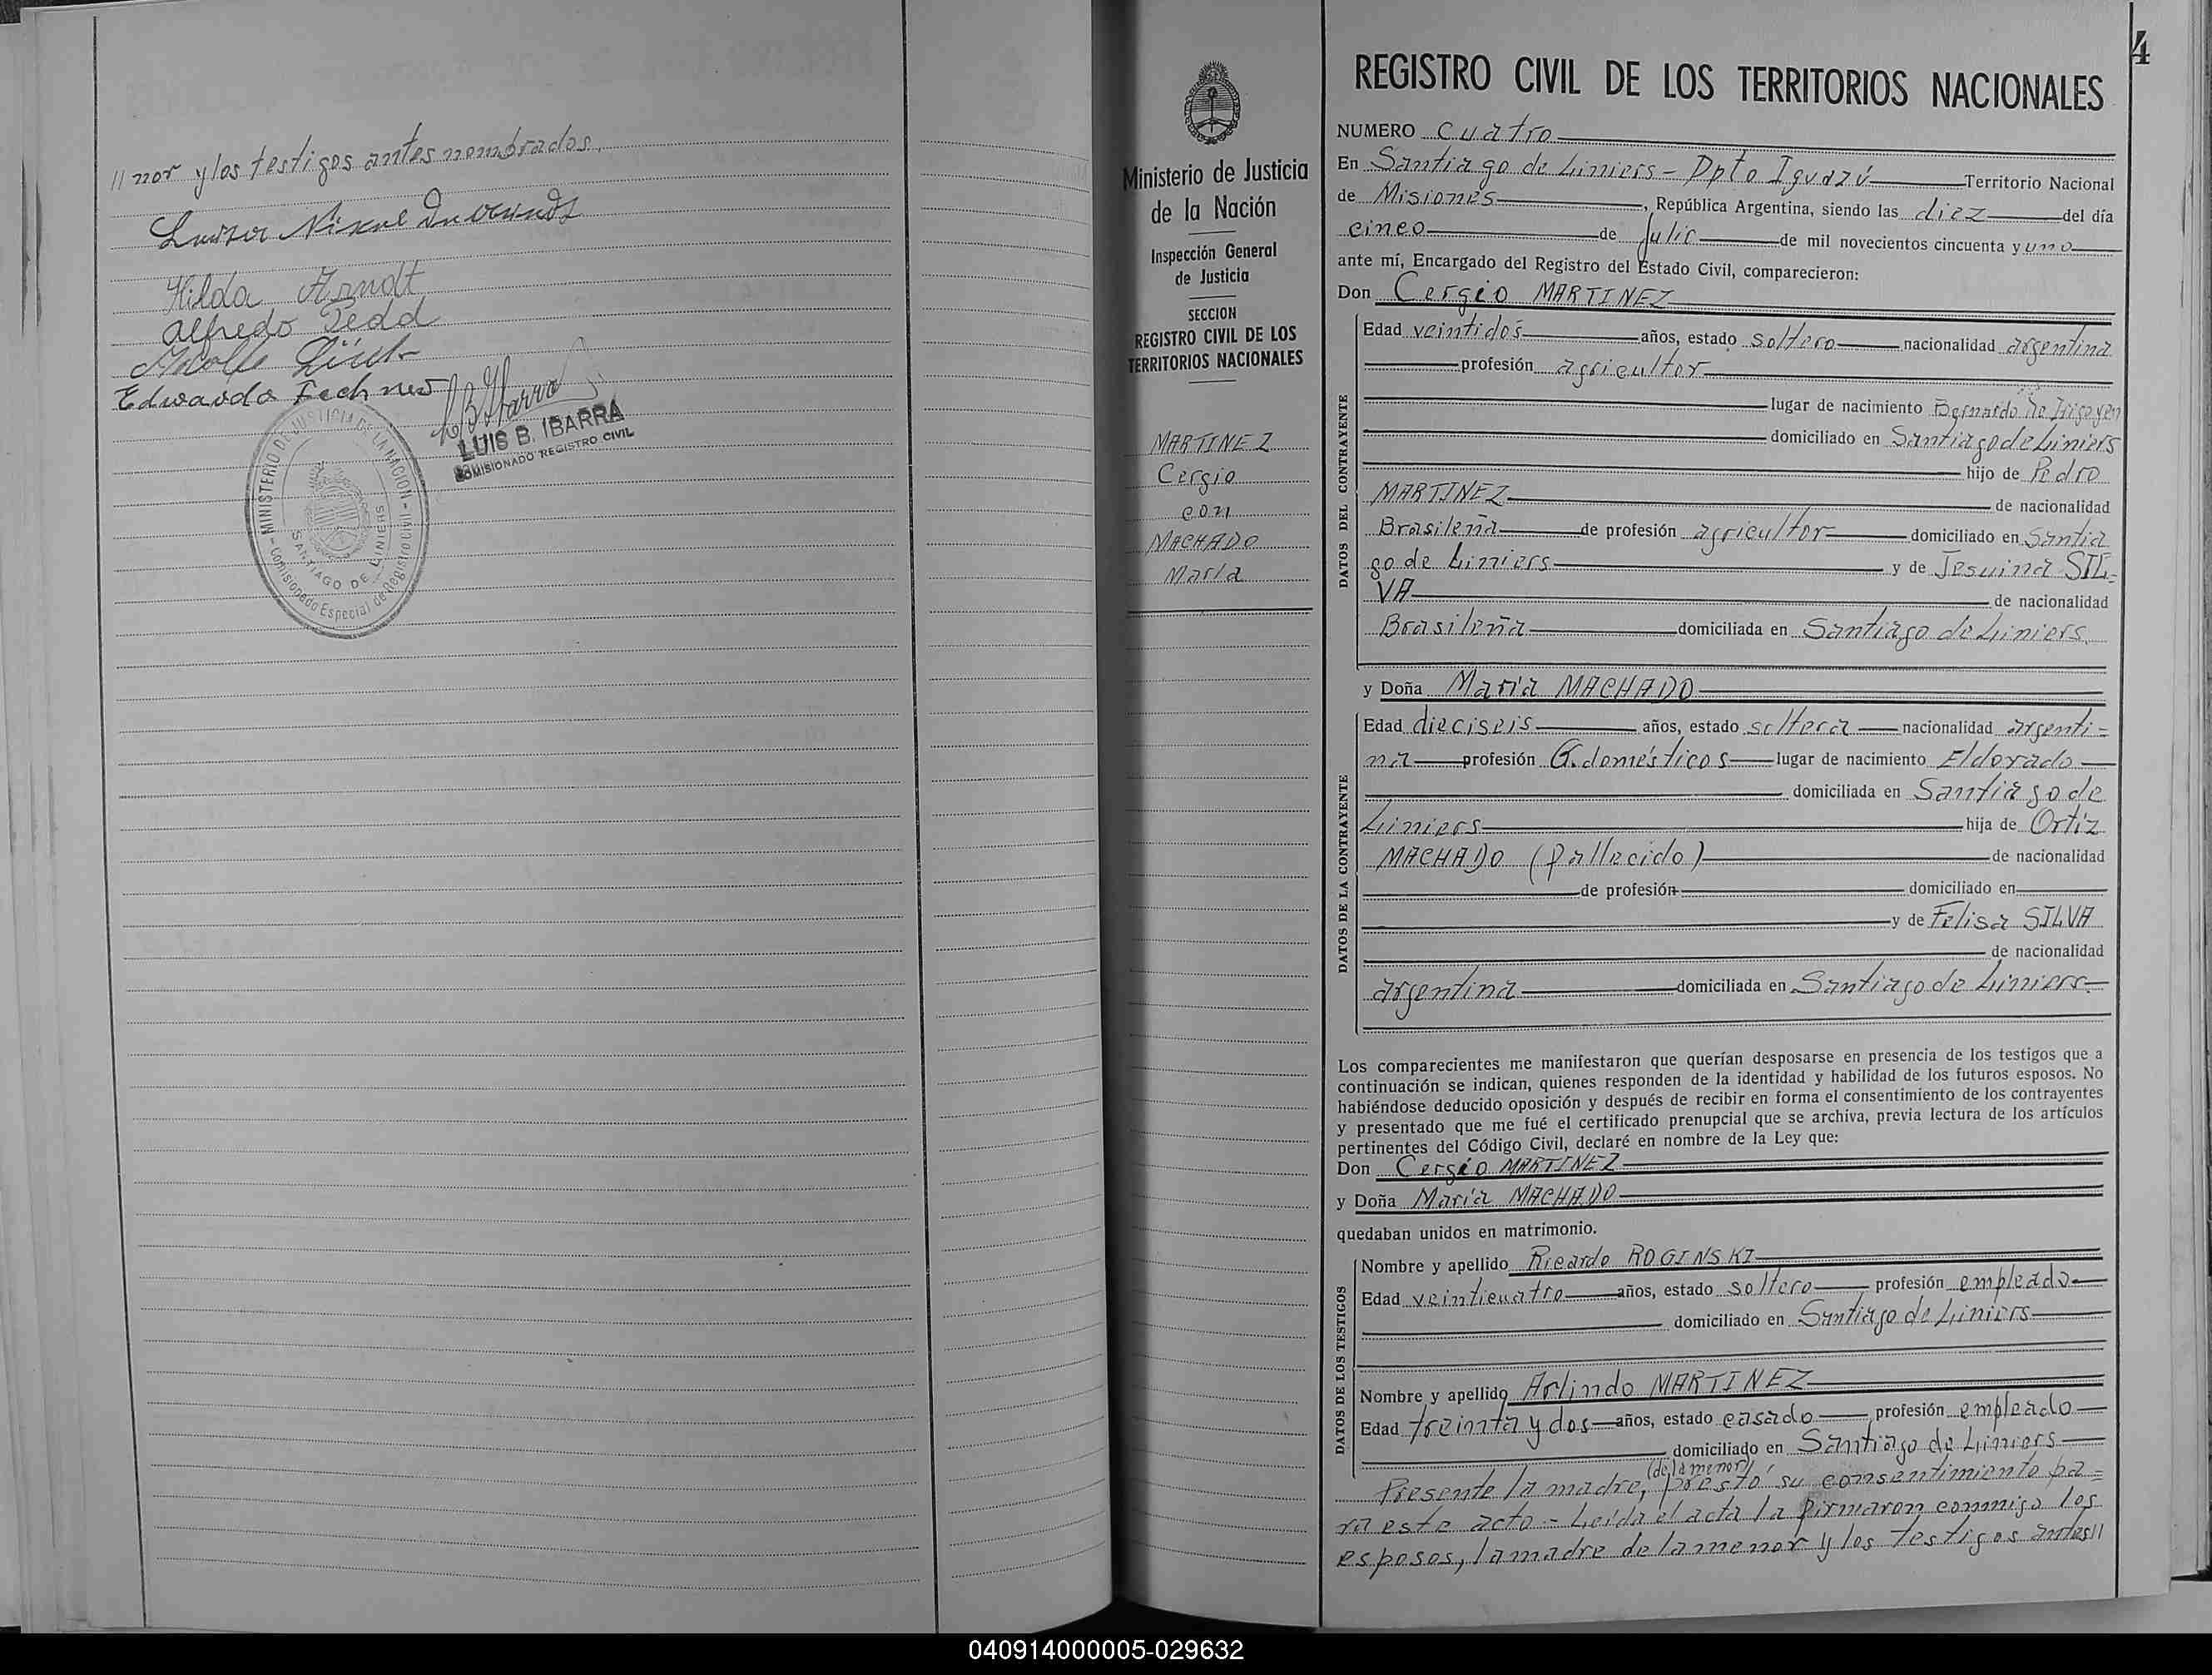 // nor y los testigos antes nombrados.
Hilda Arndt
Alfredo
Eduardo Fechner
LUIS B. IBARRA
COMISIONADO REGISTRO CIVIL
MINISTERIO DE JUSTICIA DE LA NACION
Comisionado Especial de Registro Civil
SANTIAGO DE LINIERS
Ministerio de Justicia
de la Nación
Inspección General
de Justicia
SECCION
REGISTRO CIVIL DE LOS
TERRITORIOS NACIONALES
MARTINEZ
Cergio
con
MACHADO
María
4
REGISTRO CIVIL DE LOS TERRITORIOS NACIONALES
NUMERO cuatro
En Santiago de Liniers - Dpto Iguazú Territorio Nacional
de Misiones, República Argentina, siendo las diez del día
cinco de Julio de mil novecientos cincuenta y uno
ante mí, Encargado del Registro del Estado Civil, comparecieron:
Don Cergio MARTINEZ
DATOS DEL CONTRAYENTE
Edad veintidós años, estado soltero nacionalidad argentina
profesión agricultor
lugar de nacimiento Bernardo de Irigoyen
domiciliado en Santiago de Liniers
hijo de Pedro
MARTINEZ de nacionalidad
Brasileña de profesión agricultor domiciliado en Santia
go de Liniers y de Jesuina SIL-
VA de nacionalidad
Brasileña domiciliada en Santiago de Liniers.
y Doña María MACHADO
DATOS DE LA CONTRAYENTE
Edad dieciseis años, estado soltera nacionalidad argenti=
na profesión Q. domésticos lugar de nacimiento Eldorado
domiciliada en Santiago de
Liniers hija de Ortíz
MACHADO (fallecido) de nacionalidad
de profesión domiciliado en
y de Felisa SILVA
de nacionalidad
argentina domiciliada en Santiago de Liniers.
Los comparecientes me manifestaron que querían desposarse en presencia de los testigos que a
continuación se indican, quienes responden de la identidad y habilidad de los futuros esposos. No
habiéndose deducido oposición y después de recibir en forma el consentimiento de los contrayentes
y presentado que me fué el certificado prenupcial que se archiva, previa lectura de los artículos
pertinentes del Código Civil, declaré en nombre de la Ley que:
Don Cergio MARTINEZ
y Doña María MACHADO
quedaban unidos en matrimonio.
DATOS DE LOS TESTIGOS
Nombre y apellido Ricardo ROGINSKI
Edad veinticuatro años, estado soltero profesión empleado
domiciliado en Santiago de Liniers
Nombre y apellido Arlindo MARTINEZ
Edad treinta y dos años, estado casado profesión empleado
domiciliado en Santiago de Liniers
(de la menor)
Presente la madre, prestó su consentimiento pa=
ra este acto - Leída el acta la firmaron conmigo los
esposos, la madre de la menor y los testigos antes//
040914000005-029632